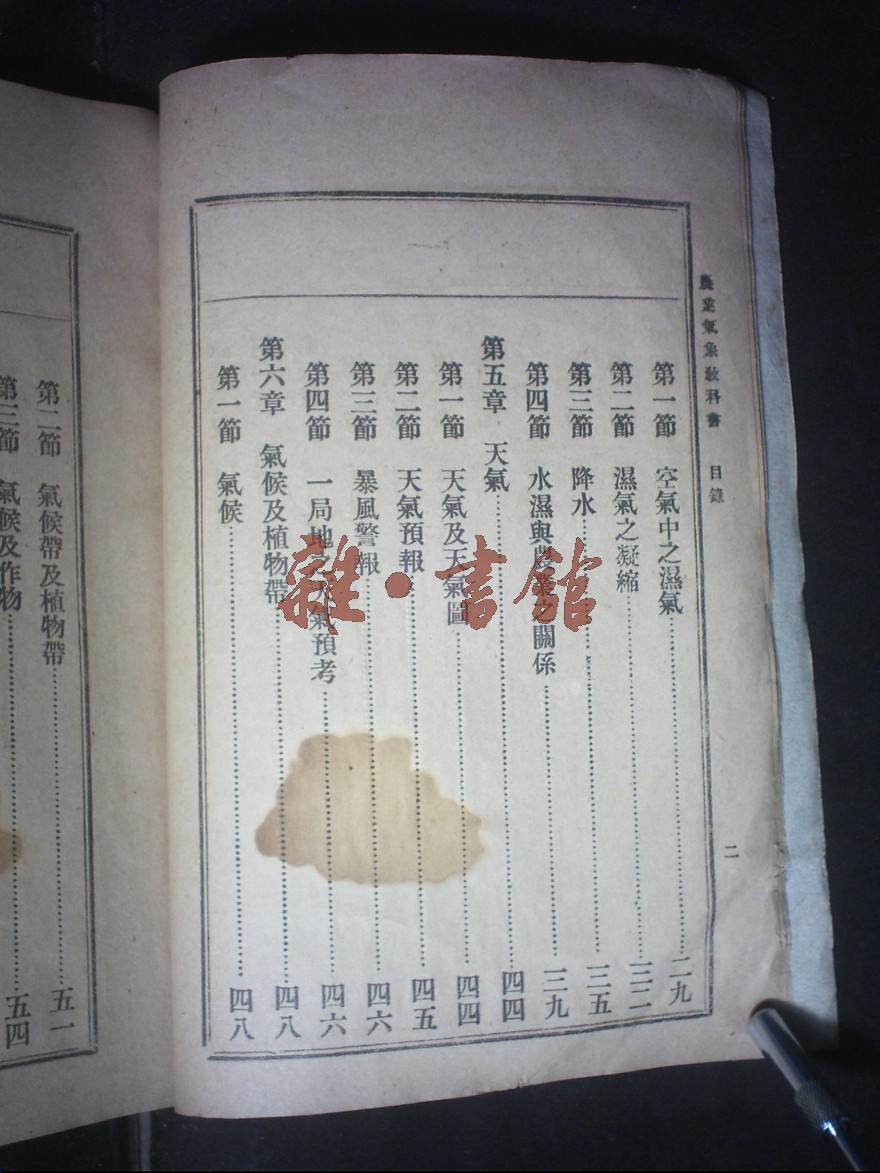 農業氣象教科書 目錄 二
第一節 空氣中之濕氣 二九
第二節 濕氣之凝縮 三二
第三節 降水 三五
第四節 水濕與農業之關係 三九
第五章 天氣 四四
第一節 天氣及天氣圖 四四
第二節 天氣預報 四五
第三節 暴風警報 四六
第四節 一局地之天氣預考 四六
第六章 氣候及植物帶 四八
第一節 氣候 四八
第二節 氣候帶及植物帶 五一
第三節 氣候及作物 五四
雜·書館